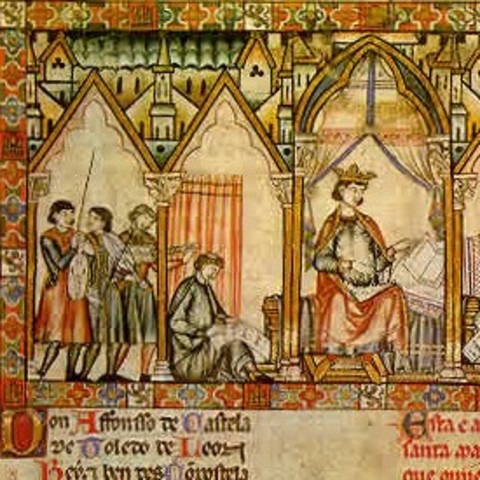 Don Affonsso de Castela
de Toledo de Leon
Rey τ ben des Conpostela
Esta e a
santa ma
que que